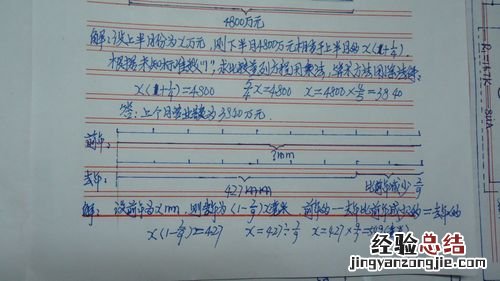 4800万元
解:设上半月份为x万元,则下半月4800万元相当于上半月的x(1+1/4).
根据求知标准数"1"?求比较量列方程用乘法,算术方法用除法得:
x(1+1/4)=4800 5/4x=4800 x=4800×4/5=3840
答:上个月营业额为3840万元.
前年:
?mm
去年:
427mm 比前年减少2/9
解:设前年为xmm,则去年为(1-2/9)x毫米 前年的一去年比前年减少的=去年的
x(1-2/9)=427 x=427÷7/9 x=427×9/7=549(毫米)
经验总结
jingyanzongjie.com